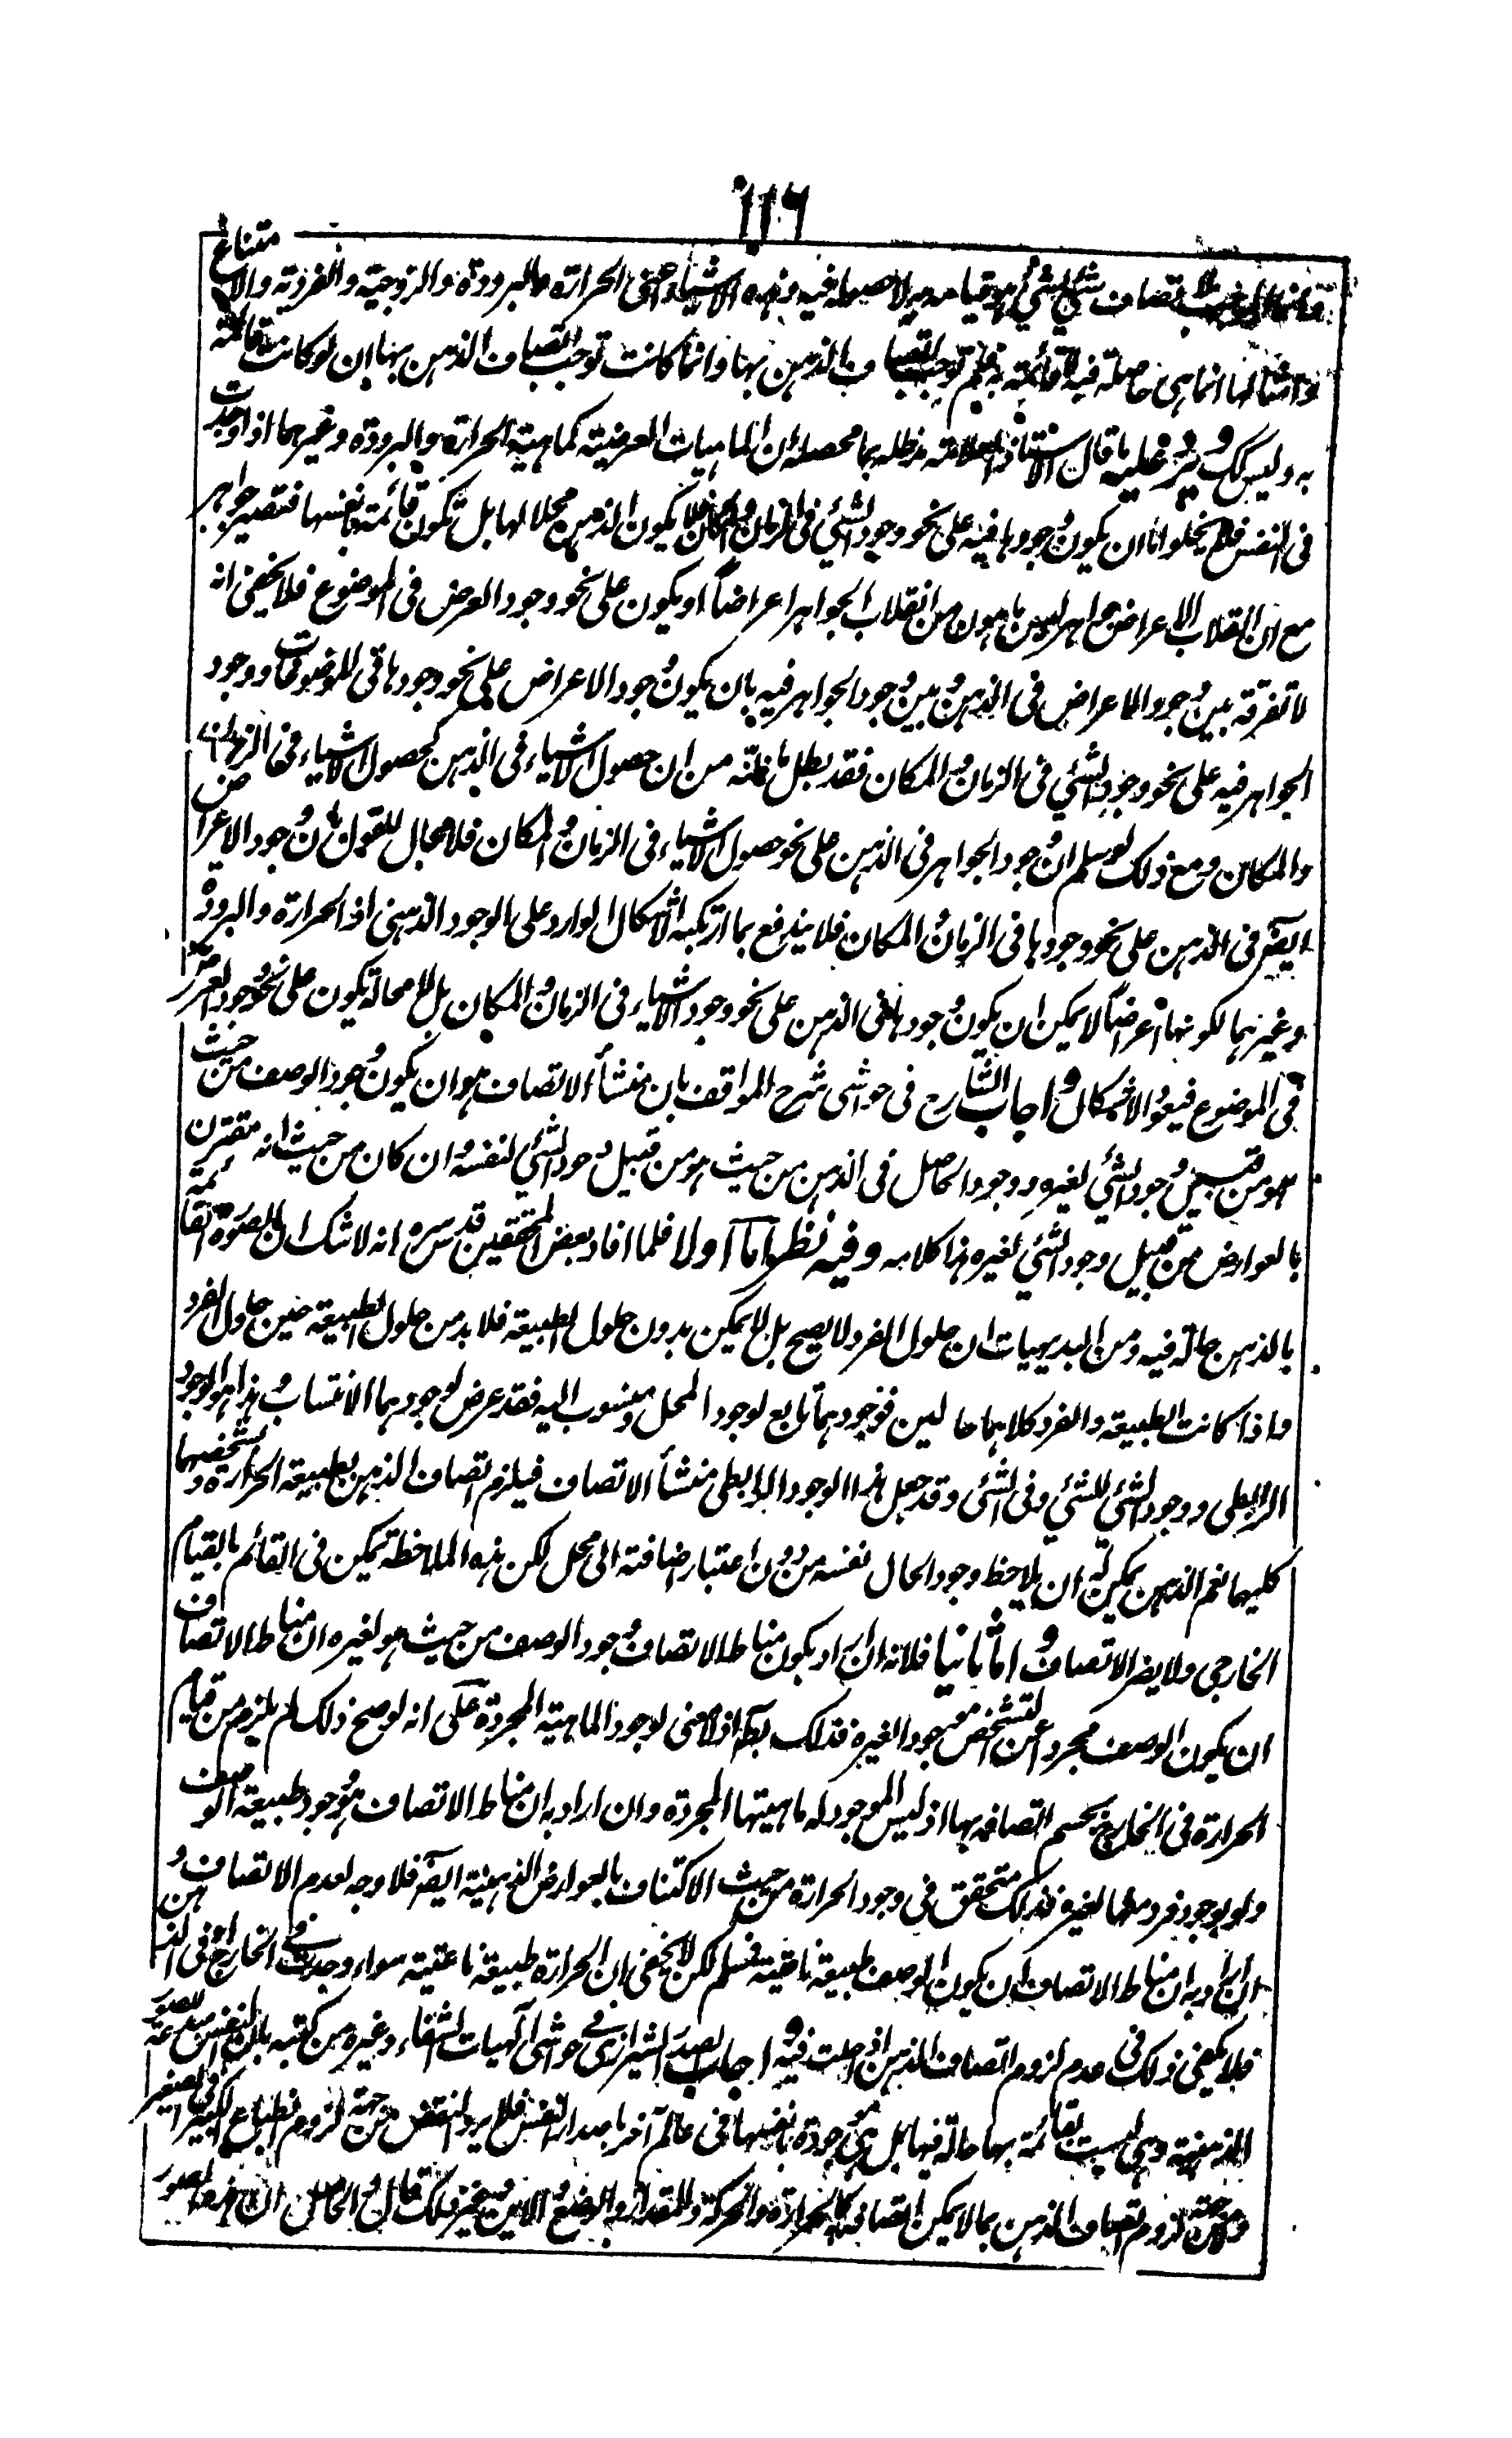 ١١٦
اتصاف شئ لشئ هو قيامه به لا حصوله فيه وهذه الاشياء اعنى الحرارة والبرودة والزوجية والفردية والامتناع
وامثالها انما هى حاصلة فيه لا قائمة به فلم توجب اتصاف الذهن بها وانما كانت توجب اتصاف الذهن بها ان لو كانت قائمة
به وليس كك ويرد عليه ما قال الاستاذ العلامة مد ظله بما محصله ان الماهيات العرضية كماهية الحرارة والبرودة وغيرهما اذا وجدت
فى النفس فلا يخلو اما ان يكون وجودها فيه على نحو وجود الشئ فى الزمان والمكان فلا يكون الذهن محلا لها بل تكون قائمة بانفسها فتصير جواهر
مع ان انقلاب الاعراض جواهر ليس باهون من انقلاب الجواهر اعراضاً او يكون على نحو وجود العرض فى الموضوع فلا يخفى انه
لا تفرقة بين وجود الاعراض فى الذهن وبين وجود الجواهر فيه بان يكون وجود الاعراض على نحو وجودها فى الموضوعات ووجود
الجواهر فيه على نحو وجود الشئ فى الزمان والمكان فقد بطل ما ظنه من ان حصول الاشياء فى الذهن كحصول الاشياء فى الزمان
والمكان ومع ذلك لو سلم ان وجود الجواهر فى الذهن على نحو حصول الاشياء فى الزمان والمكان فلا مجال للقول بان وجود الاعراض
ايضاً فى الذهن على نحو وجودها فى الزمان والمكان فلا يندفع بما ارتكبه الاشكال الوارد على الوجود الذهنى اذ الحرارة والبرودة
وغيرهما لكونها اعراضاً لا يمكن ان يكون وجودها فى الذهن على نحو وجود الاشياء فى الزمان والمكان بل لا محالة يكون على نحو وجود العرض
فى الموضوع فيعود الاشكال واجاب الشارح فى حواشى شرح المواقف بان منشأ الاتصاف هو ان يكون وجود الوصف من حيث
هو من قبيل وجود الشئ لغيره ووجود الحاصل فى الذهن من حيث هو من قبيل وجود الشئ لنفسه وان كان من حيث انه مقترن
بالعوارض من قبيل وجود الشئ لغيره هذا كلامه وفيه نظر اما اولا فلما افاد بعض المحققين قدس سره انه لا شك ان الصورة القائمة
بالذهن حالة فيه ومن البديهيات ان حلول الفرد لا يصح بل لا يمكن بدون حلول الطبيعة فلا بد من حلول الطبيعة حين حلول الفرد
واذا كانت الطبيعة والفرد كلاهما حالين فوجودهما تابع لوجود المحل ومنسوب اليه فقد عرض لوجودهما الانتساب وهذا هو الوجود
الرابطى ووجود الشئ للشئ وفى الشئ وقد جعل هذا الوجود الرابطى منشأ الاتصاف فيلزم اتصاف الذهن بطبيعة الحرارة وشخصها
كليهما نعم الذهن يمكن له ان يلاحظ وجود الحال نفسه من دون اعتبار اضافته الى محل لكن هذه الملاحظة تمكن فى القائم بالقيام
الخارجى ولا يضر الاتصاف واما ثانيا فلانه ان اراد بكون مناط الاتصاف وجود الوصف من حيث هو لغيره ان مناط الاتصاف
ان يكون الوصف مجردا عن التشخص موجودا لغيره فذلك بط اذ لا معنى لوجود الماهية المجردة على انه لو صح ذلك لم يلزم من قيام
الحرارة فى الخارج بجسم اتصافه بها اذ ليس الموجود له ماهيتها المجردة وان اراد به ان مناط الاتصاف هو وجود طبيعة الوصف
ولو بوجود فرد منها لغيره فذلك متحقق فى وجود الحرارة من حيث الاكتناف بالعوارض الذهنية ايضاً فلا وجه لعدم الاتصاف و
ان اراد به ان مناط الاتصاف ان يكون الوصف طبيعة ناعتية فمسلم لكن لا يخفى ان الحرارة طبيعة ناعتية سواء وجدت فى الخارج او فى الذهن
فلا يكفى ذلك فى عدم لزوم اتصاف الذهن اذا حلت فيه واجاب الصدر الشيرازى فى حواشى الهيات الشفاء وغيره من كتبه بان النفس مبدعة للصور
الذهنية وهى ليست بقائمة بها حالة فيها بل هى موجودة بانفسها فى عالم آخر باصدار النفس فلا يرد النقض من جهة لزوم انطباع الكبير فى الصغير
ومن جهة لزوم اتصاف الذهن بما لا يمكن اتصافه به كالحرارة والحركة والمقدار والوضع والاين وغير ذلك قال والحاصل ان هذه الصور